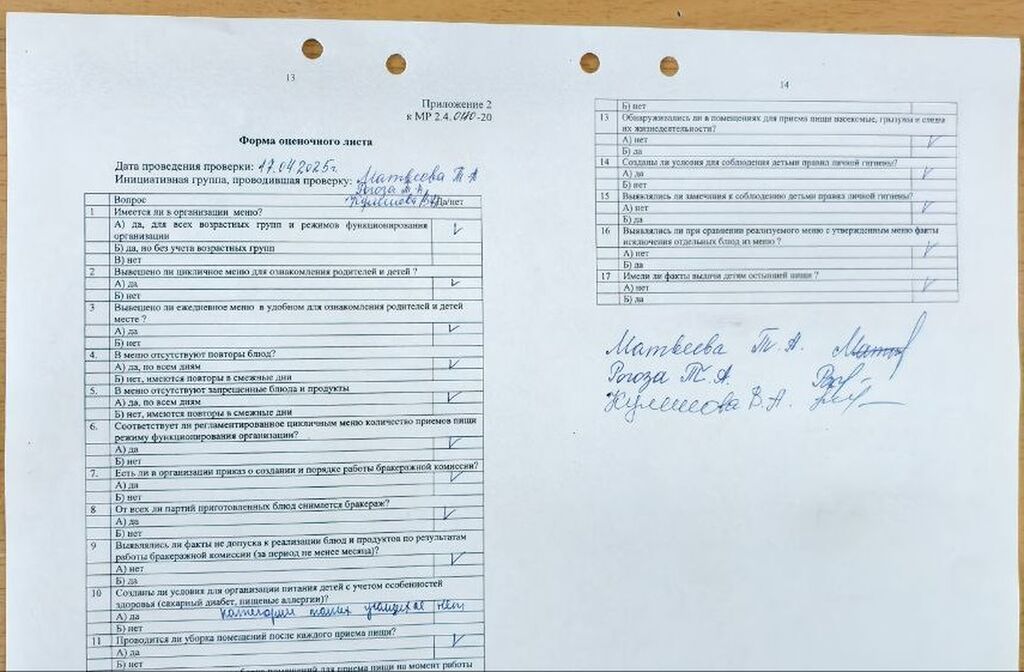 13
Приложение 2
к МР 2.4.0180-20
Форма оценочного листа
Дата проведения проверки: 17.04.2025г
Инициативная группа, проводившая проверку: Матвеева Т А
Рогоза Т. А.
Кулешова В.А.
Вопрос Да/нет
1 Имеется ли в организации меню?
А) да, для всех возрастных групп и режимов функционирования
организации
Б) да, но без учета возрастных групп
В) нет
2 Вывешено ли цикличное меню для ознакомления родителей и детей ?
А) да
Б) нет
3 Вывешено ли ежедневное меню в удобном для ознакомления родителей и детей
месте ?
А) да
Б) нет
4. В меню отсутствуют повторы блюд?
А) да, по всем дням
Б) нет, имеются повторы в смежные дни
5. В меню отсутствуют запрещенные блюда и продукты
А) да, по всем дням
Б) нет, имеются повторы в смежные дни
6. Соответствует ли регламентированное цикличным меню количество приемов пищи
режиму функционирования организации?
А) да
Б) нет
7. Есть ли в организации приказ о создании и порядке работы бракеражной комиссии?
А) да
Б) нет
8 От всех ли партий приготовленных блюд снимается бракераж?
А) да
Б) нет
9 Выявлялись ли факты не допуска к реализации блюд и продуктов по результатам
работы бракеражной комиссии (за период не менее месяца)?
А) нет
Б) да
10 Созданы ли условия для организации питания детей с учетом особенностей
здоровья (сахарный диабет, пищевые аллергии)?
А) да категории таких учащихся нет
Б) нет
11 Проводится ли уборка помещений после каждого приема пищи?
А) да
Б) нет
помещений для приема пищи на момент работы
14
Б) нет
13 Обнаруживались ли в помещениях для приема пищи насекомые, грызуны и следы
их жизнедеятельности?
А) нет
Б) да
14 Созданы ли условия для соблюдения детьми правил личной гигиены?
А) да
Б) нет
15 Выявлялись ли замечания к соблюдению детьми правил личной гигиены?
А) нет
Б) да
16 Выявлялись ли при сравнении реализуемого меню с утвержденным меню факты
исключения отдельных блюд из меню ?
А) нет
Б) да
17 Имели ли факты выдачи детям остывшей пищи ?
А) нет
Б) да
Матвеева Т. А.
Рогоза Т. А.
Кулешова В.А.